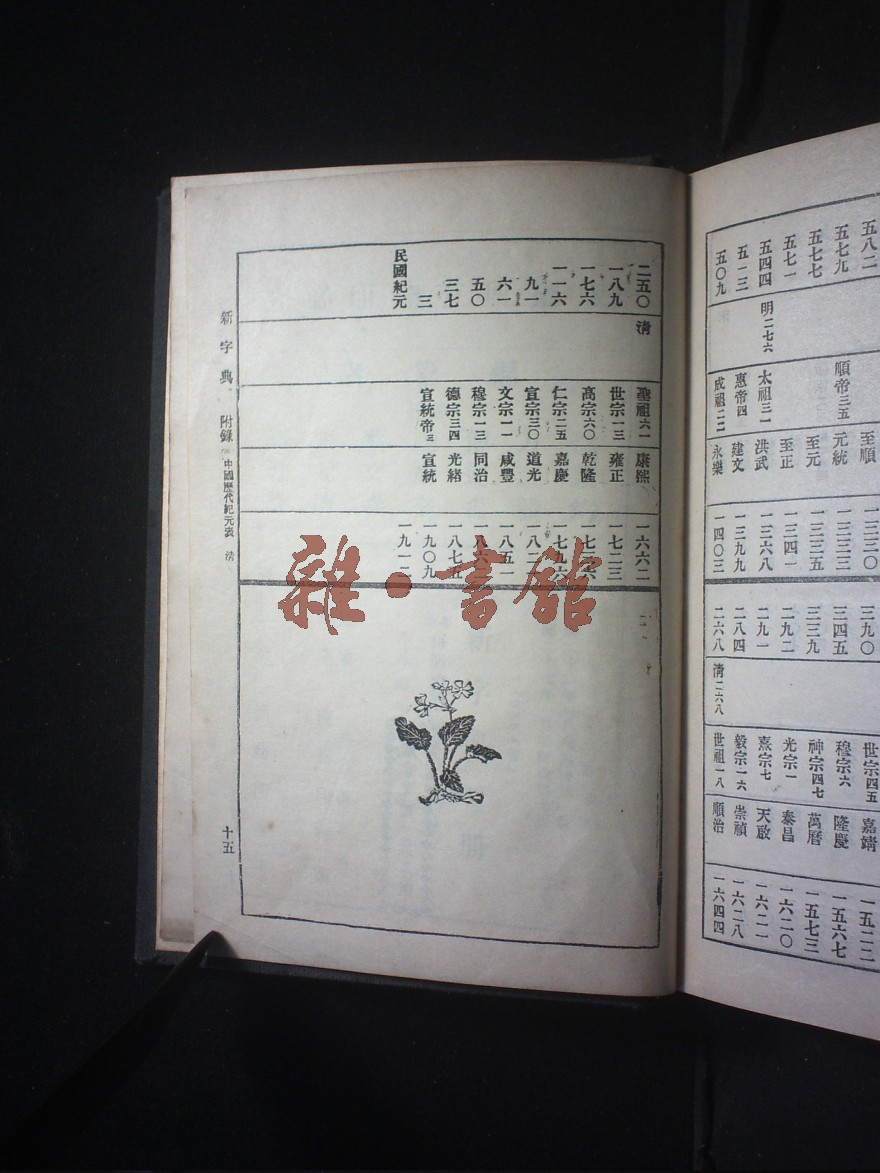 五八二 至順 一三三〇
五七九 順帝三五 元統 一三三三
五七七 至元 一三三五
五七一 至正 一三四一
五四四 明二七六 太祖三一 洪武 一三六八
五一三 惠帝四 建文 一三九九
五〇九 成祖二二 永樂 一四〇三
三九〇 世宗四五 嘉靖 一五二二
三四五 穆宗六 隆慶 一五六七
三三九 神宗四七 萬曆 一五七三
二九二 光宗一 泰昌 一六二〇
二九一 熹宗七 天啟 一六二一
二八四 毅宗一六 崇禎 一六二八
二六八 清二六八 世祖一八 順治 一六四四
二五〇 清 聖祖六一 康熙 一六六二
一八九 世宗一三 雍正 一七二三
一七六 高宗六〇 乾隆
一一六 仁宗二五 嘉慶
九一 宣宗三〇 道光
六一 文宗一一 咸豐 一八五一
五〇 穆宗一三 同治
三七 德宗三四 光緒 一八七五
三 宣統帝三 宣統 一九〇九
民國紀元 一九一二
新字典 附錄 中國歷代紀元表 清
十五
雜·書館